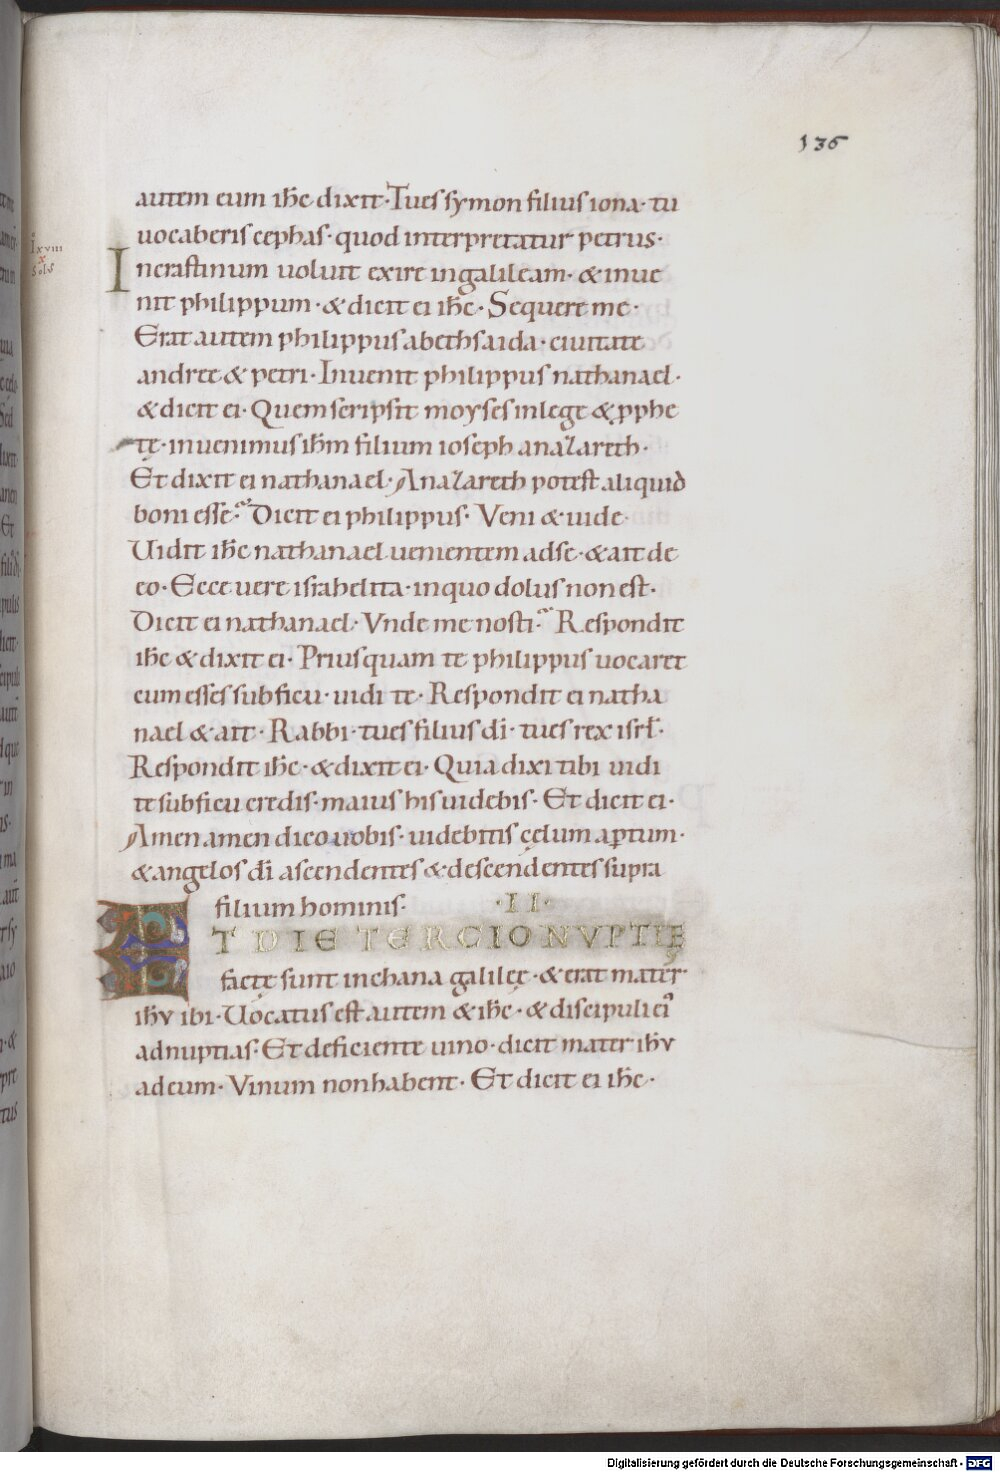 136
autem eum ihc dixit· Tu es symon filius iona· tu
uocaberis cephas· quod interpretatur petrus·
Io
xviii
x
Solus
In crastinum uoluit exire in galileam· & inue
nit philippum· & dicit ei ihc· Sequere me·
Erat autem philippus a bethsaida· ciuitate
andree & petri· Inuenit philippus nathanael·
& dicit ei· Quem scripsit moyses in lege & pphe
tę· inuenimus ihm filium ioseph a nazareth·
Et dixit ei nathanael· A nazareth potest aliquid
boni esse? Dicit ei philippus· Veni & uide·
Uidit ihc nathanael uenientem ad se· & ait de
eo· Ecce uere israhelita· in quo dolus non est·
Dicit ei nathanael· Vnde me nosti? Respondit
ihc & dixit ei· Priusquam te philippus uocaret
cum esses sub ficu· uidi te· Respondit ei natha
nael & ait· Rabbi· tu es filius di· tu es rex isrl·
Respondit ihc· & dixit ei· Quia dixi tibi uidi
te sub ficu credis· maius his uidebis· Et dicit ei·
Amen amen dico uobis· uidebitis cęlum aptum·
& angelos di ascendentes & descendentes supra
filium hominis· ·II·
ET DIE TERCIO NVPTIĘ
factę sunt in chana galilęę· & erat mater
ihv ibi· Uocatus est autem & ihc· & discipuli ei
ad nuptias· Et deficiente uino· dicit mater ihv
ad eum· Vinum non habent· Et dicit ei ihc·
Digitalisierung gefördert durch die Deutsche Forschungsgemeinschaft - DFG